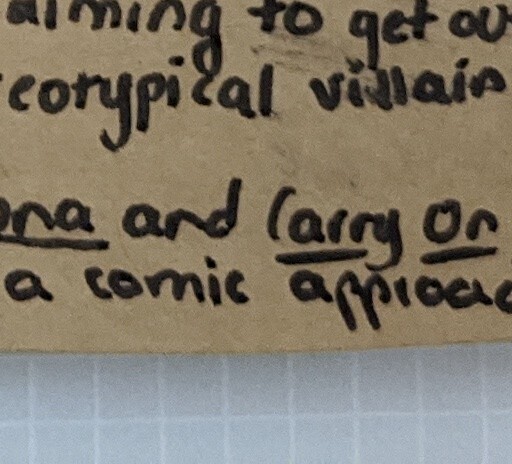 aiming to get ou
eotypical villain
ona and Carry On
a comic approac